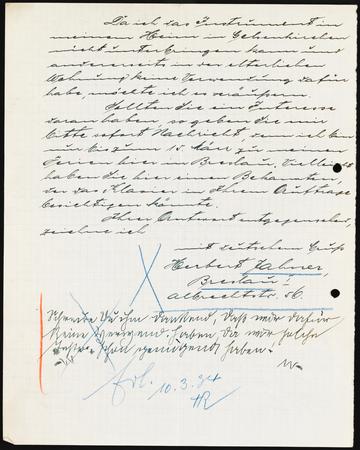 Da ich das Instrument in
meinem Heim in Gebenkirchen
nicht unterbringen kann und
andererseits in der elterlichen
Wohnung keine Verwendung dafür
habe, möchte ich es veräußern.
Sollten die ein Interesse
daran haben, so geben die mir
bitte sofort Nachricht, denn ich bin
nur bis zum 15. März zu meinen
Ferien hier in Breslau. Vielleicht
haben die hier einen Bekannten,
der das Klavier in Ihrem Auftrage
besichtigen könnte.
Ihrer Antwort entgegensehend,
zeichne ich
mit deutschem Gruß
Herbert Hahner,
Breslau 1
Albrechtstr. 56.
Schreibe Du ihm dankend, daß wir dafür
keine Verwend. haben, da wir solche
schon genügend haben.
Erl. 10.3.34